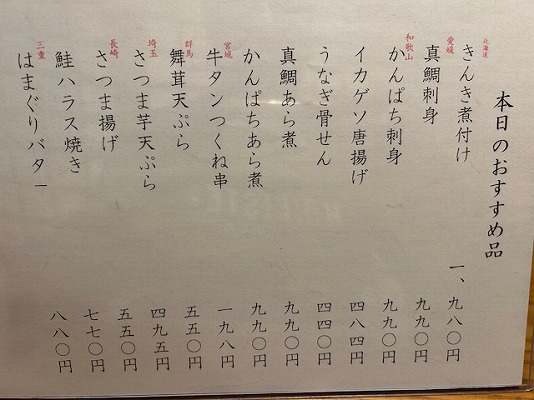 本日のおすすめ品
北海道 きんき煮付け 一、九八〇円
愛媛 真鯛刺身 九九〇円
和歌山 かんぱち刺身 九九〇円
イカゲソ唐揚げ 四八四円
うなぎ骨せん 四四〇円
真鯛あら煮 九九〇円
かんぱちあら煮 九九〇円
宮城 牛タンつくね串 一九八円
群馬 舞茸天ぷら 五五〇円
埼玉 さつま芋天ぷら 四九五円
長崎 さつま揚げ 五五〇円
鮭ハラス焼き 七七〇円
三重 はまぐりバター 八八〇円